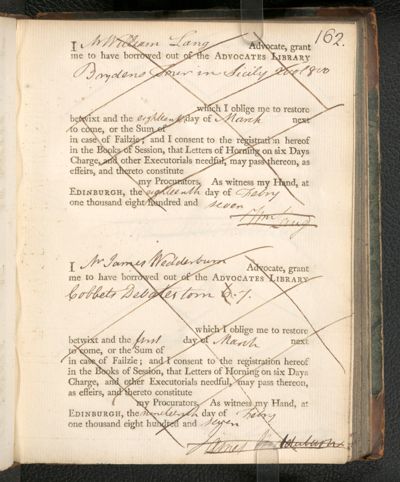 162.
I Mr William Lang Advocate, grant
me to have borrowed out of the ADVOCATES LIBRARY
Brydens Tour in Sicily
which I oblige me to restore
betwixt and the eighteenth day of March next
to come, or the Sum of
in case of Failzie; and I consent to the registration hereof
in the Books of Session, that Letters of Horning on six Days
Charge, and other Executorials needful, may pass thereon, as
effeirs, and thereto constitute
my Procurators. As witness my Hand, at
EDINBURGH, the eighteenth day of Febry
one thousand eight hundred and seven
Wm Lang
I Mr James Wedderburn Advocate, grant
me to have borrowed out of the ADVOCATES LIBRARY
Cobbets Debates tom 6. 7.
which I oblige me to restore
betwixt and the first day of March next
to come, or the Sum of
in case of Failzie; and I consent to the registration hereof
in the Books of Session, that Letters of Horning on six Days
Charge, and other Executorials needful, may pass thereon,
as effeirs, and thereto constitute
my Procurators. As witness my Hand, at
EDINBURGH, the nineteenth day of Febry
one thousand eight hundred and seven
James Wedderburn